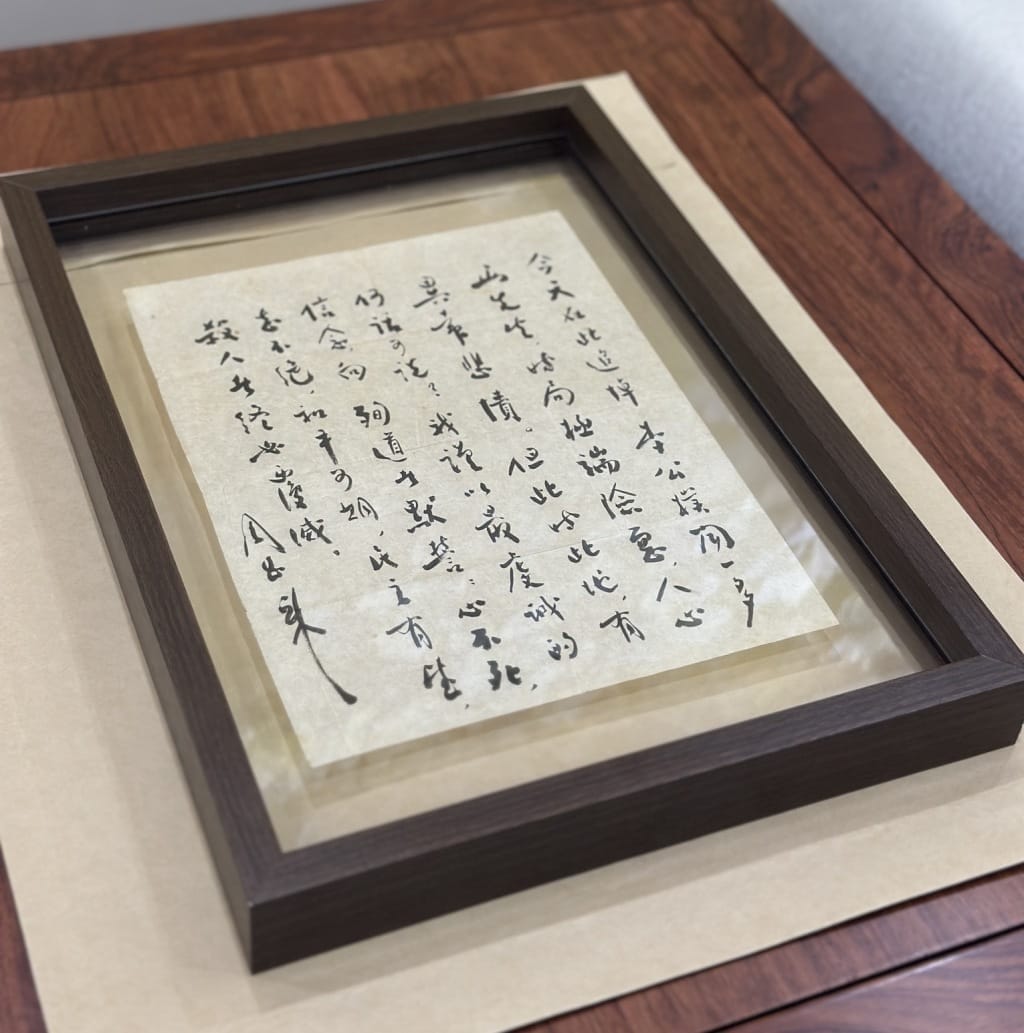 今天在此追悼李公樸聞一多
兩先生，時局極端險惡，人心
異常悲憤。但此時此地，有
何話可説？我謹以最虔誠的
信念，向殉道者默誓：心不死，
志不絕，和平可期，民主有望，
殺人者終必覆滅。
周恩來